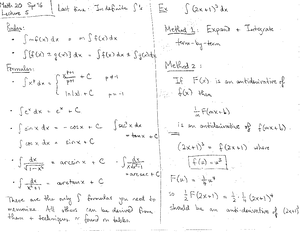 Math 20 Spr 16
Lecture 5
Last time: Indefinite ∫'s
Rules:
• ∫ m f(x) dx = m ∫ f(x) dx
• ∫ [f(x) ± g(x)] dx = ∫ f(x) dx ± ∫ g(x) dx
Formulas:
• ∫ x^p dx = { x^(p+1)/(p+1) + C   p ≠ -1
ln|x| + C   p = -1
• ∫ e^x dx = e^x + C
• ∫ sin x dx = -cos x + C
∫ sec²x dx = tan x + C
∫ cos x dx = sin x + C
• ∫ dx/√(1-x²) = arcsin x + C
= arcsec x + C
• ∫ dx/(x²+1) = arctan x + C
These are the only ∫ formulas you need to
memorize. All others can be derived from
them + techniques or found in tables.
Ex ∫ (2x+1)³ dx
Method 1: Expand + Integrate
term-by-term
Method 2:
If F(x) is an antiderivative of
f(x) then
1/m F(mx+b)
is an antiderivative of f(mx+b).
(2x+1)³ = f(2x+1) where
f(u) = u³
F(u) = 1/4 u⁴
so 1/2 F(2x+1) = 1/2 · 1/4 (2x+1)⁴
should be an anti-derivative of (2x+1)³